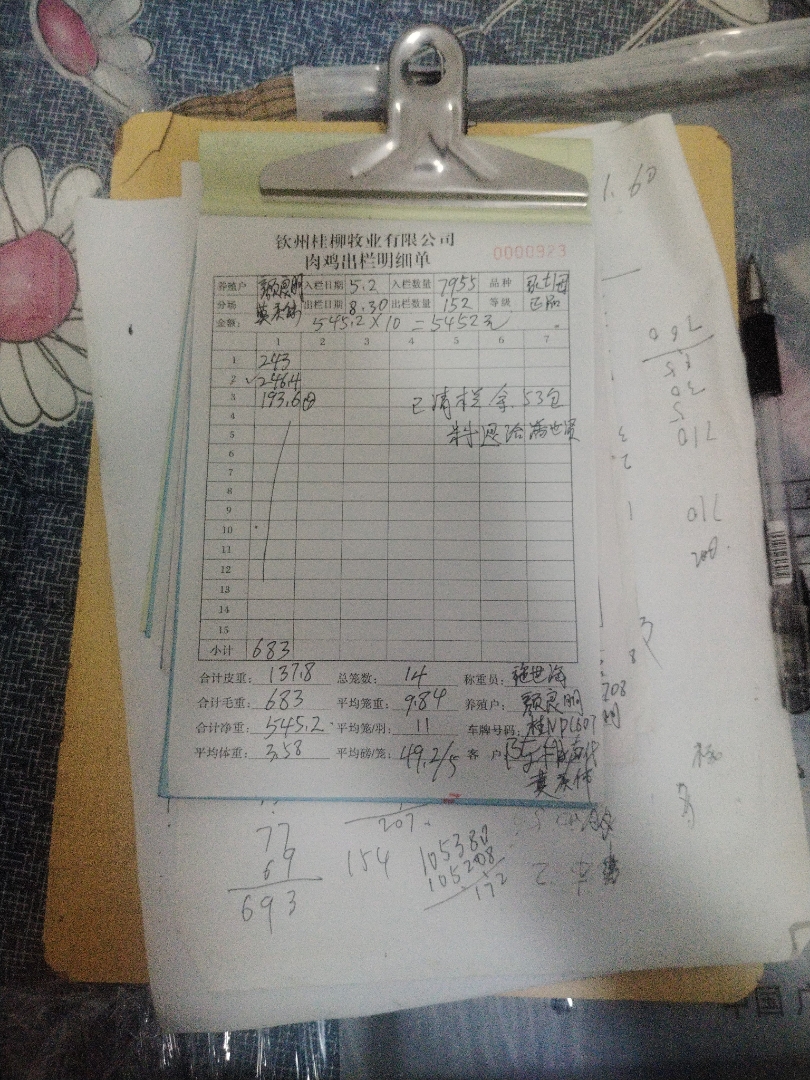 钦州桂柳牧业有限公司
肉鸡出栏明细单
0000923
养殖户 颜良明 入栏日期 5.2 入栏数量 7955 品种
分场 出栏日期 8.30 出栏数量 152 等级 正品
金额: 545.2×10=5452元
1 2 3 4 5 6 7
1 243
2 246.4
3 193.6
4 已清栏余 53包
5
6
7
8
9
10
11
12
13
14
15
小计 683
合计皮重: 137.8 总笼数: 14 称重员:
合计毛重: 683 平均笼重: 9.84 养殖户: 颜良明
合计净重: 545.2 平均笼/羽: 11 车牌号码:
平均体重: 3.58 平均磅/笼: 49.2/5 客户
1.60
760
3.5
30
5
710
710
200.
708
明
8
207.
77
69
693
154
105380
105208
172
中国 广